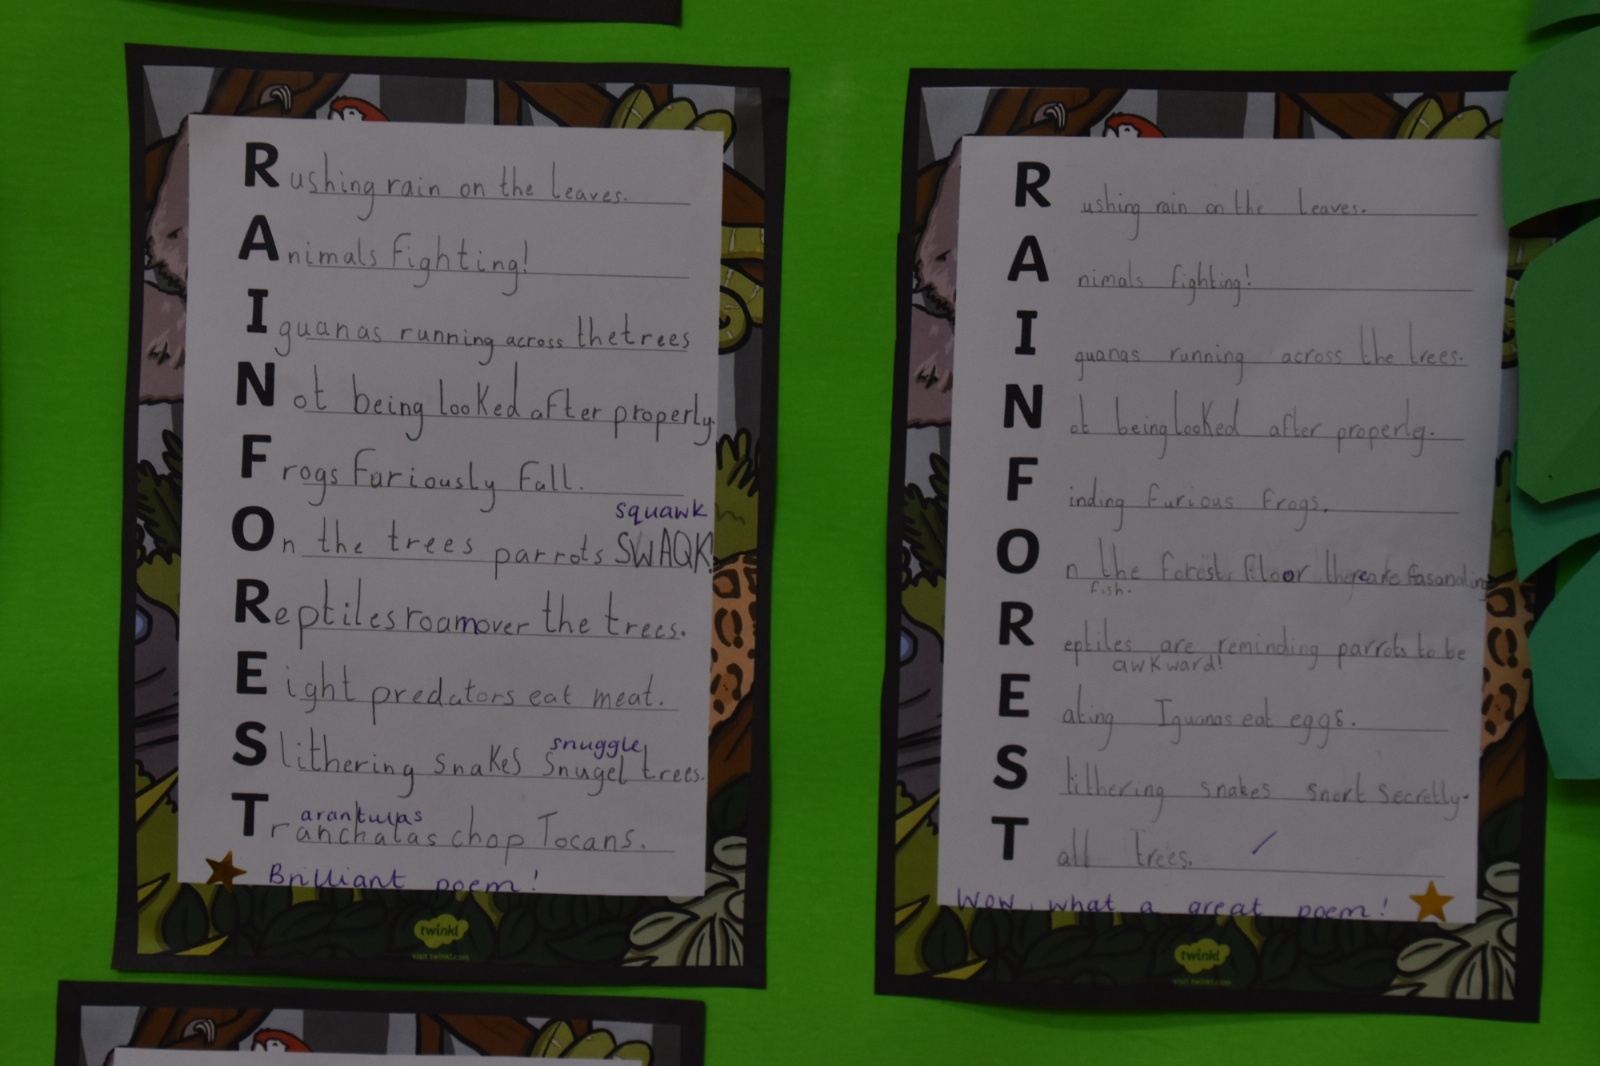 Rushing rain on the leaves.
Animals Fighting!
Iguanas running across the trees
Not being looked after properly.
Frogs Furiously Fall.
squawk
On the trees parrots SWAQK!
Reptiles roam over the trees.
Eight predators eat meat.
snuggle
Slithering snakes snugel trees.
arantulas
Tranchalas chop Tocans.
Brilliant poem!
twinkl
visit twinkl.com
Rushing rain on the leaves.
Animals fighting!
Iguanas running across the trees.
Not being looked after properly.
Finding Furious Frogs.
On the forest floor there are fasanading
fish.
Reptiles are reminding parrots to be
awkward!
Eating Iguanas eat eggs.
Slithering snakes snort secretly.
Tall trees.
Wow, what a great poem!
twinkl
visit twinkl.com